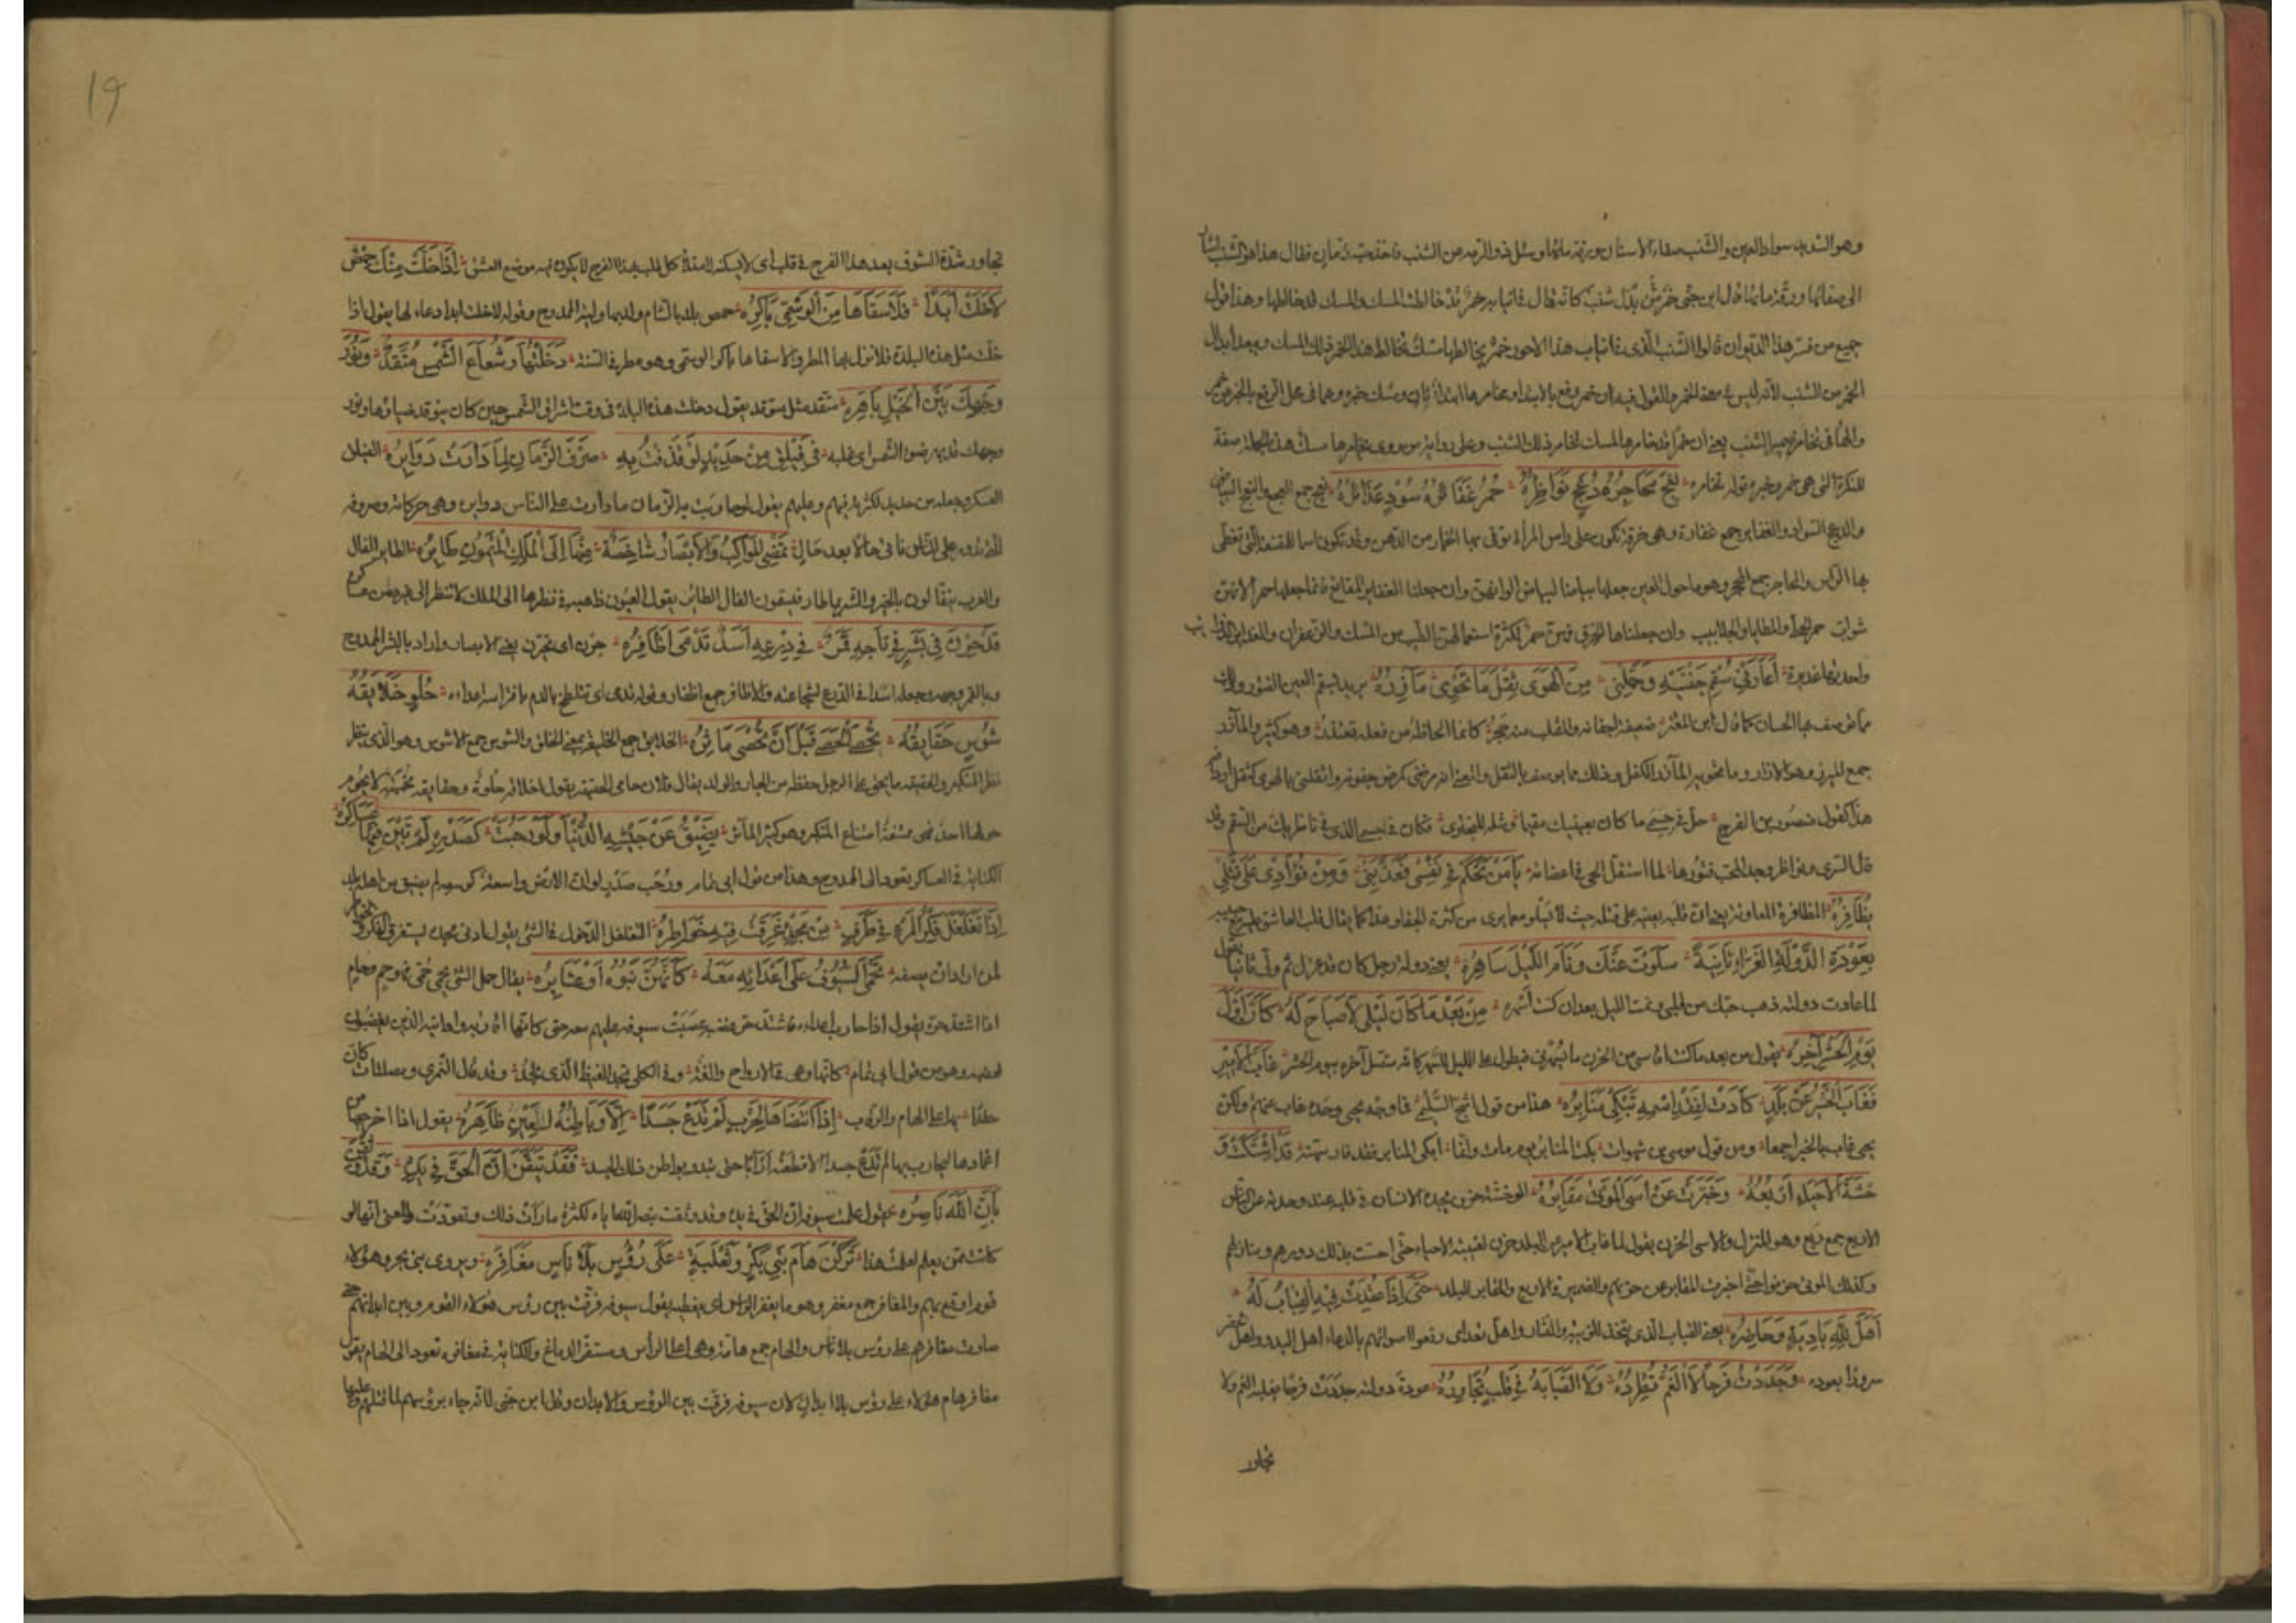 وهو الشديد سواد العين والشنب صفاء الاسنان ورقة مائها وسئل ذو الرمة عن الشنب فاخذ حبة رمان فقال هذا هو الشنب اشار
الى صفائها ورقة مائها قال ابن جنى خمر بدل من شنب كانه قال فانيابه خمر قد خالطت المسك والمسك قد خالطها وهذا قول
جميع من فسر هذا الديوان قالوا الشنب الذى فى انياب هذا الاحور خمر يخالطها مسك تخالط هذا الخمر ذلك المسك ويبعد ابدال
الخمر من الشنب لانه ليس فى معنى الخمر والقول فيه ان خمر رفع بالابتداء ومخامرها ابتداء ثان ومسك خبره وهما فى محل الرفع بالخبر عن خمر
والهاء فى تخامره ضمير الشنب يعنى ان خمرا قد خامرها المسك تخامر ذلك الشنب وعلى رواية من يروى يخامرها مسك هذه الجملة صفة
للنكرة التى هى خمر وخبره قوله تخامره نعج محاجره دعج نواظره حمر غفائره سود غدائره النعج جمع
والدعج السواد والغفاير جمع غفارة وهى خرقة تكون على راس المرأة توقى بها الخمار من الدهن وقد تكون اسما للمقنعة التى تغطى
بها الراس والمحاجر جمع المحجر وهو ما حول العين جعلها بياضا لبياض الوانهن وان جعلنا الغفاير المقانع فانما جعلها حمر لانهن
شواب حمر الحلى والمطايا والجلابيب وان جعلناها الخرق فهى حمر لكثرة استعمالهن الطيب من المسك والزعفران والغداير الذوائب
واحدتها غديرة أعارنى سقم جفنيه وحملنى من الهوى ثقل ما تحوى مآزره يريد بسقم العين الفتور وذلك
مما توصف بها الحسان كما قال ابن المعتز ضعيفة اجفانه والقلب منه حجر كانما الحاظه من فعله تعتذر وهو كثير والمآزر
جمع المئزر وهو الازار وما تحويه المآزر الكفل وذلك مما يوصف بالثقل والمعنى انه مرضنى كمرض جفونه واثقلنى بالهوى كثقل اردافه
هذا كقول منصور بن الفرج حل فى جسمى ما كان بعينيك مقيما ومثله للبحترى فكان فى جسمى الذى فى ناظريك من السقم
قال السرى ونواظر وجد المحب فتورها لما استقل الحى فى اعضائه يا من تحكم فى نفسى فعذبنى ومن فؤادى على قتلى
يظافره المظافرة المعاونة يعنى ان قلبه يعينه على قتله حيث لا يسلو مع ما يرى من كثرة الجفاء وهذا كما يقال قلب العاشق عليه مع حبيبه
بعودة الدولة الغراء ثانية سلوت عنك ونام الليل ساهره يعنى دولة رجل كان قد عزل ثم ولى ثانيا يقول
لما عاودت دولته ذهب حبك من قلبى ونمت الليل بعد ان كنت اسهره من بعد ما كان ليلى لا صباح له كان اول
يوم الحشر آخره يقول من بعد ما كنت اقاسى من الحزن ما يسهرنى فيطول على الليل للسهر كانه متصل آخره بيوم الحشر غاب الامير
فغاب الخير عن بلد كادت لفقد اسمه تبكى منابره هذا من قول اشجع السلمى فما وجه يحيى وحده غاب عنهم ولكن
يحيى غاب بالخير اجمعا ومن قول موسى بن شهوات بكت المنابر يوم مات وانما ابكى المنابر فقد فارسهنه قد اشتكت و
حشة الاحياء اربعه وخبرت عن اسى الموتى مقابره الوحشة حزن يجده الانسان فى قلبه عند وحدته عن الناس
الاربع جمع ربع وهو المنزل والاسى الحزن يقول لما غاب الامير عن البلد حزن لغيبته الاحياء حتى احست بذلك دورهم ومنازلهم
وكذلك الموتى حزنوا حتى اخبرت المقابر عن حزنهم والضمير فى الاربع والمقابر للبلد حتى اذا عقدت فيه القباب له
اهل لله باديه وحاضره يعنى القباب الذى يتخذ للزينة والنثار واهل لله اى رفعوا اصواتهم بالدعاء اهل البدو واهل الحضر
سرورا بعوده وجددت فرحا لا الغم تطرده ولا الصبابة فى قلب تجاوره عودة دولته جددت فرحا يغلبه الغم ولا
تجاور
19
تجاور شدة الشوق بعد هذا الفرح فى قلب اى لا يسكنه لامتلاء كل قلب بهذا الفرح لا يكون فيه موضع العشق اذا خلت منك حمص
لا خلت ابدا فلا سقاها من الوسمى باكره حمص بلد بالشام ولد بها ولى الممدوح وقوله لا خلت ابدا دعاء لها يقول اذا
خلت مثل هذه البلدة فلا نزل بها المطر ولا سقاها باكر الوسمى وهو مطر فى السنة دخلتها وشعاع الشمس متقد ونور
وجهك بين الخيل باهره متقد مثل متوقد يقول دخلت هذه البلدة فى وقت اشراق الشمس حين كان يتوقد ضياؤها ونور
وجهك قد بهر ضوء الشمس اى غلبه فى فيلق من حديد لو قذفت به صرف الزمان لما دارت دوائره الفيلق
العسكر وجعله من حديد لكثرته فيهم وعليهم يقول لو حاربت به الزمان ما دارت على الناس دوايره وهى حركاته وصروفه
التى تدور على الناس فانى حالا بعد حال تمضى المواكب والابصار شاخصة منها الى الملك الميمون طائره الطاير الفال
والعرب يتفالون بالخير والشر بما طار فيسمون الفال الطائر يقول العيون ذاهبة فى نظرها الى الملك لا تنظر الى غيره
قد حزن فى بشر فى تاجه قمر فى درعه اسد تدمى اظافره حزن اى تحيرن يعنى الابصار واراد بالبشر الممدوح
وبالقمر وجهه وجعله اسدا فى الدرع لشجاعته والاظافر جمع اظفار وقوله تدمى اى تتلطخ بالدم بافتراسه اعداءه حلو خلائقه
شوس حقايقه تحصى الحصى قبل ان تحصى مآثره الخلايق جمع الخليقة بمعنى الخلق والشوس جمع الاشوس وهو الذى ينظر
نظر المتكبر والحقيقة ما يحق على الرجل حفظه من الجار والولد يقال فلان حامى الحقيقة يقول اخلاقه حلوة وحقايقه محمية لا يحوم
حولها احد فهى ممتنعة امتناع المتكبر وهو كثير المآثر يضيق عن جيشه الدنيا ولو رحبت كصدره لم تبن فيها عساكره
الكناية فى العساكر يعود الى الممدوح وهذا من قول ابى تمام ورحب صدر لو ان الارض واسعة كوسعه لم يضق عن اهله بلد
اذا تغلغل فكر المرء فى طرف من مجده غرقت فيه خواطره التغلغل الدخول فى الشئ يقول ادنى مجده يستغرق الفكر والخواطر
لمن اراد ان يصفه تحمى السيوف على اعدائه معه كانهن بنوه او عشايره يقال حمى الشئ يحمى حمى فهو حم وحام
اذا اشتد حره يقول اذا حارب اعداءه فاشتد حر غضبه غضبت سيوفه عليهم معه حتى كانها اقاربه واهل بيته الذين يغضبون
لغضبه وهو من قول ابى تمام كانها وهى فى الارواح والغة وفى الكلى تجد الغيظ الذى تجد وقد قال النمرى ومصلتات كان
حقدا بها على الهام والرقاب اذا انتضاها لحرب لم تدع جسدا الا وباطنه للعين ظاهره يقول اذا اخرجها من
اغمادها ليحارب بها لم تدع جسدا الا قطعته اربا حتى تبدو بواطن ذلك الجسد فقد تيقن ان الحق فى يده وقد وثقن
بان الله ناصره يقول علمت سيوفه ان الحق فى يده وقد وثقت بنصر الله اياه لكثرة ما رأت ذلك وتعودت والمعنى انها لو
كانت ممن يعلم لعلمت هذا تركن هام بنى بكر وثعلبة على رؤس بلا ناس مغافره ويروى بنى بحر وهؤلاء
قوم اوقع بهم والمغافر جمع مغفر وهو ما يغفر الراس اى يغطيه يقول سيوفه فرقت بين رؤس هؤلاء القوم وبين ابدانهم حتى
صارت مغافرهم على رؤس بلا ناس والهام جمع هامة وهى اعلى الرأس ومستقر الدماغ والكناية فى مغافره تعود الى الهام يقول
مغافر هام هؤلاء على رؤس بلا ابدان لان سيوفه فرقت بين الرؤس والابدان وقال ابن جنى لانه جاء برؤسهم لما قتلهم وعليها